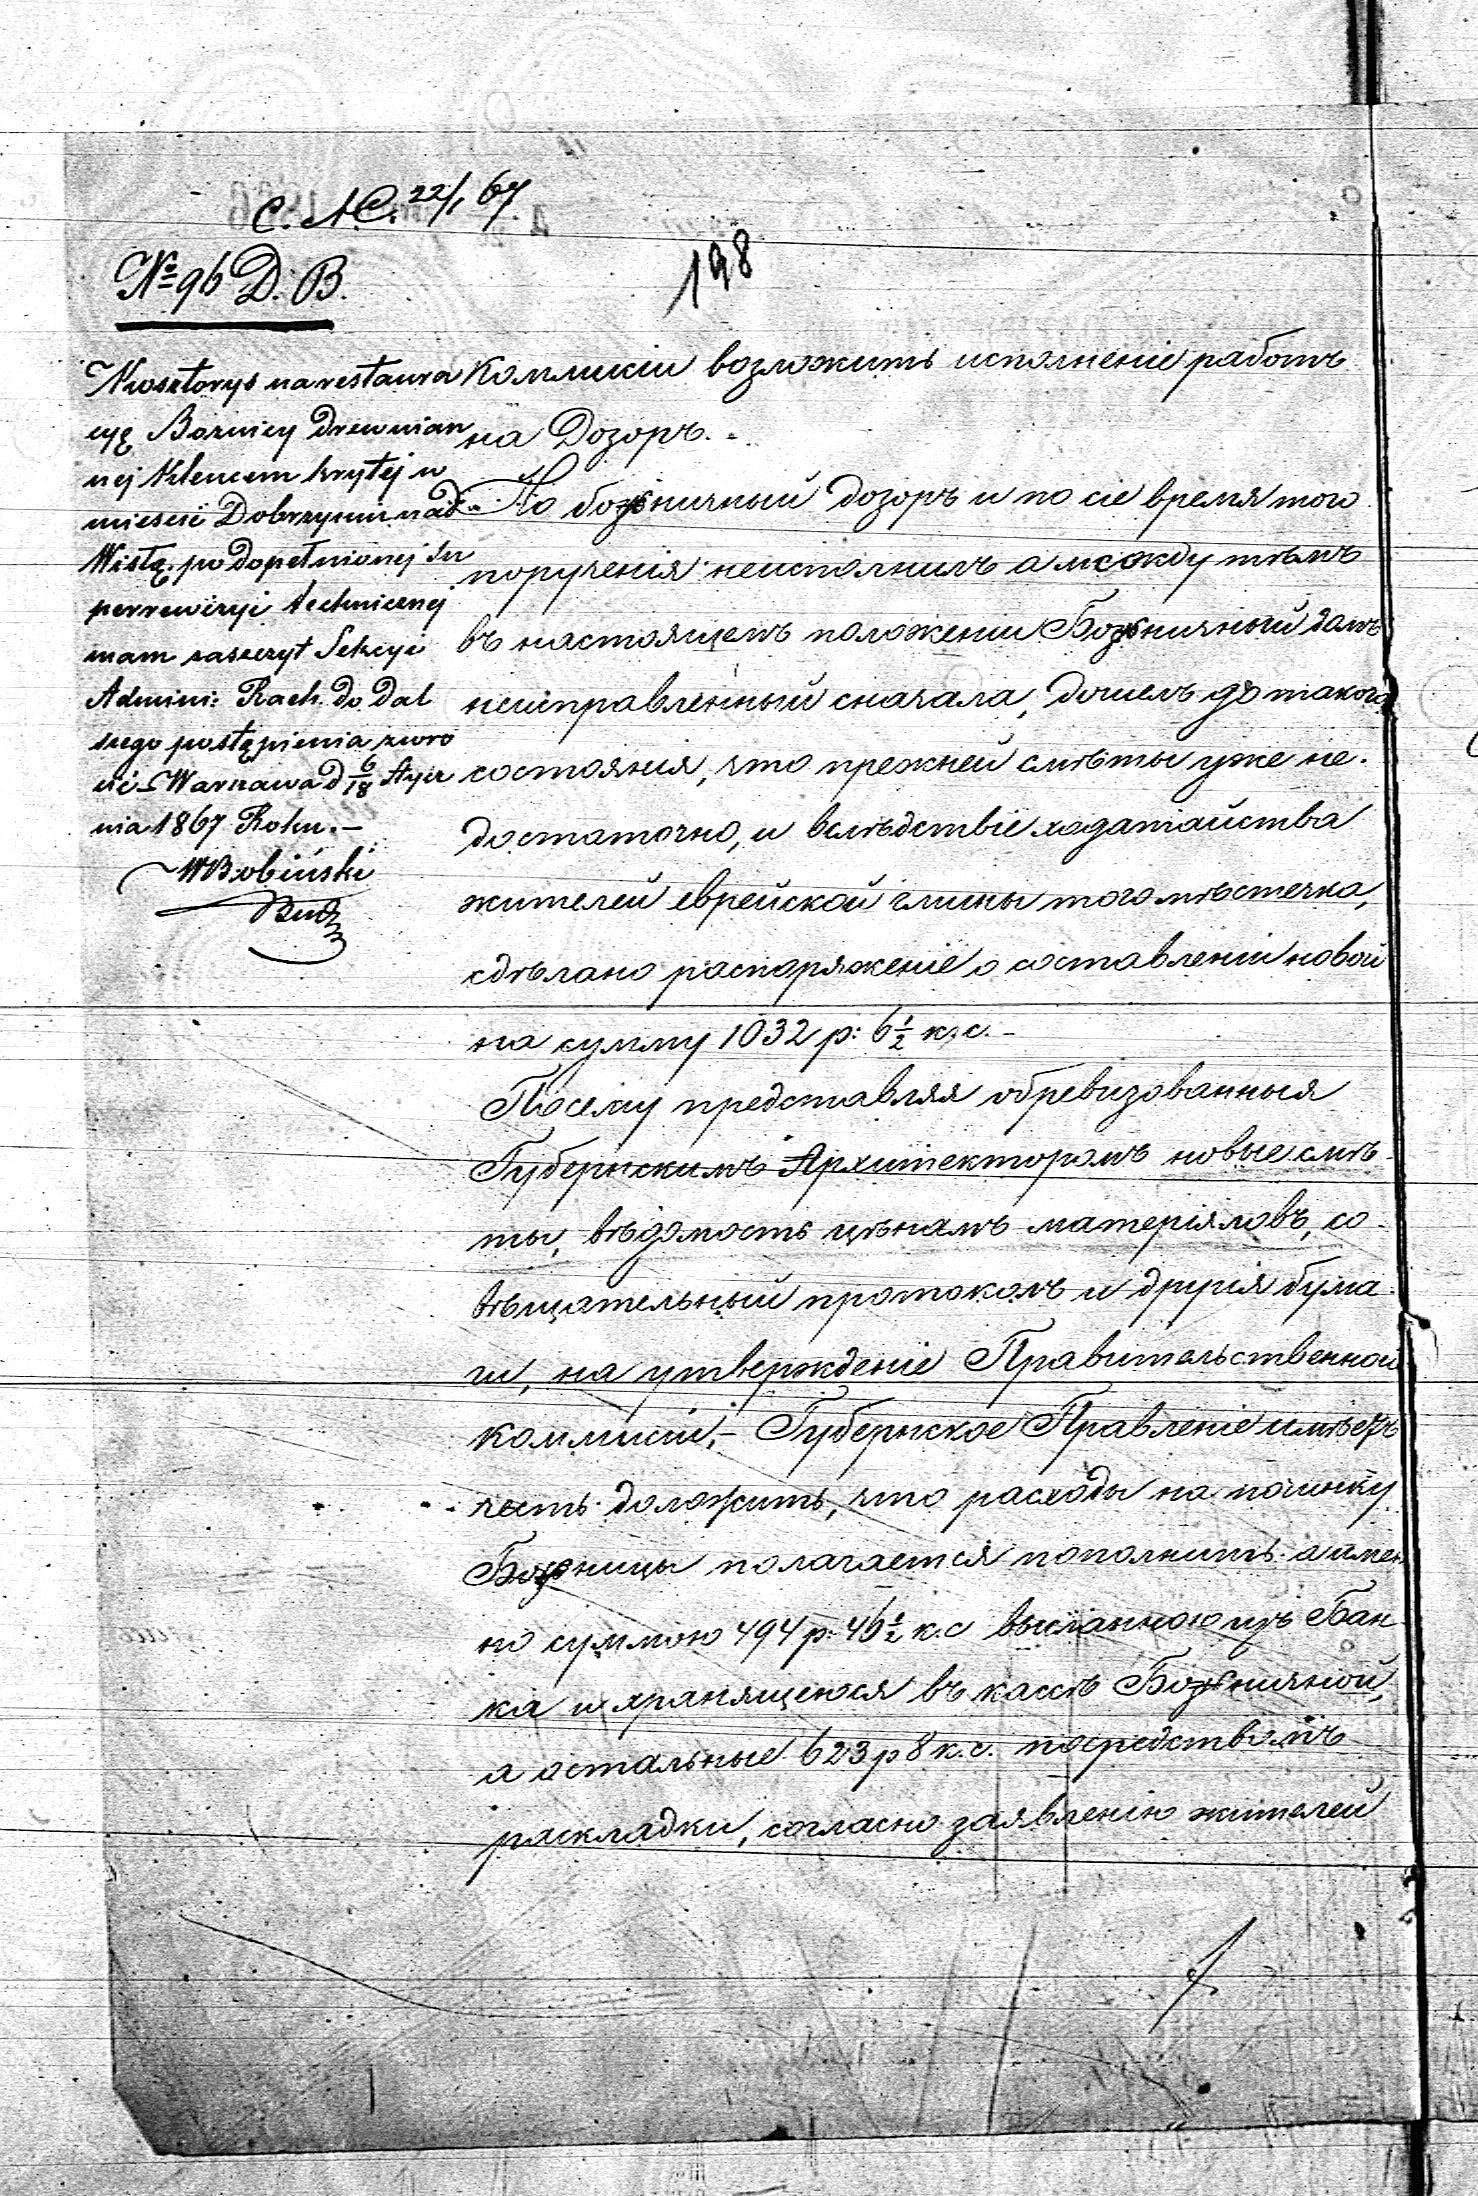 C. A C. 22/1 67
№ 96 D. B.
198
Kosztorys na restaura
cyę Boznicy drewnian
nej klencem krytej w
mieście Dobrzyniu nad
Wisłą po dopełnionej su
perrewizyi technicznej
mam zaszczyt Sekcyi
Admini: Rach. do dal
szego postąpienia zwró
cić – Warszawa d 6/18 Stycz
nia 1867 Roku. –
Bud
Коммисіи возложить исполненіе работъ
на Дозоръ. –
Но божничный дозоръ и по сіе время того
порученія неисполнилъ а между тѣмъ
въ настоящемъ положеніи Божничный домъ
неисправленный сначала, дошелъ до такого
состоянія, что прежней смѣты уже не.
достаточно, и вслѣдствіе ходатайства
жителей еврейской гмины того мѣстечка,
сдѣлано распоряженіе о составленіи новой
на сумму 1032 р: 6½ к. с. –
Посему представляя обревизованныя
Губернскимъ Архитекторомъ новые смѣ-
ты, вѣдомость цѣнамъ матеріяловъ, со-
вѣщательный протоколъ и другія бума-
ги, на утвержденіе Правительственной
коммисіи, – Губернское Правленіе имѣетъ
честь доложить, что расходы на починку
Божницы полагается пополнить а имен
но суммою 494 р. 46½ к. с высланною изъ Бан
ка и хранящеюся въ кассѣ Божничной,
а остальные 623 р 8 к. с. посредствомъ
раскладки, согласно заявленію жителей